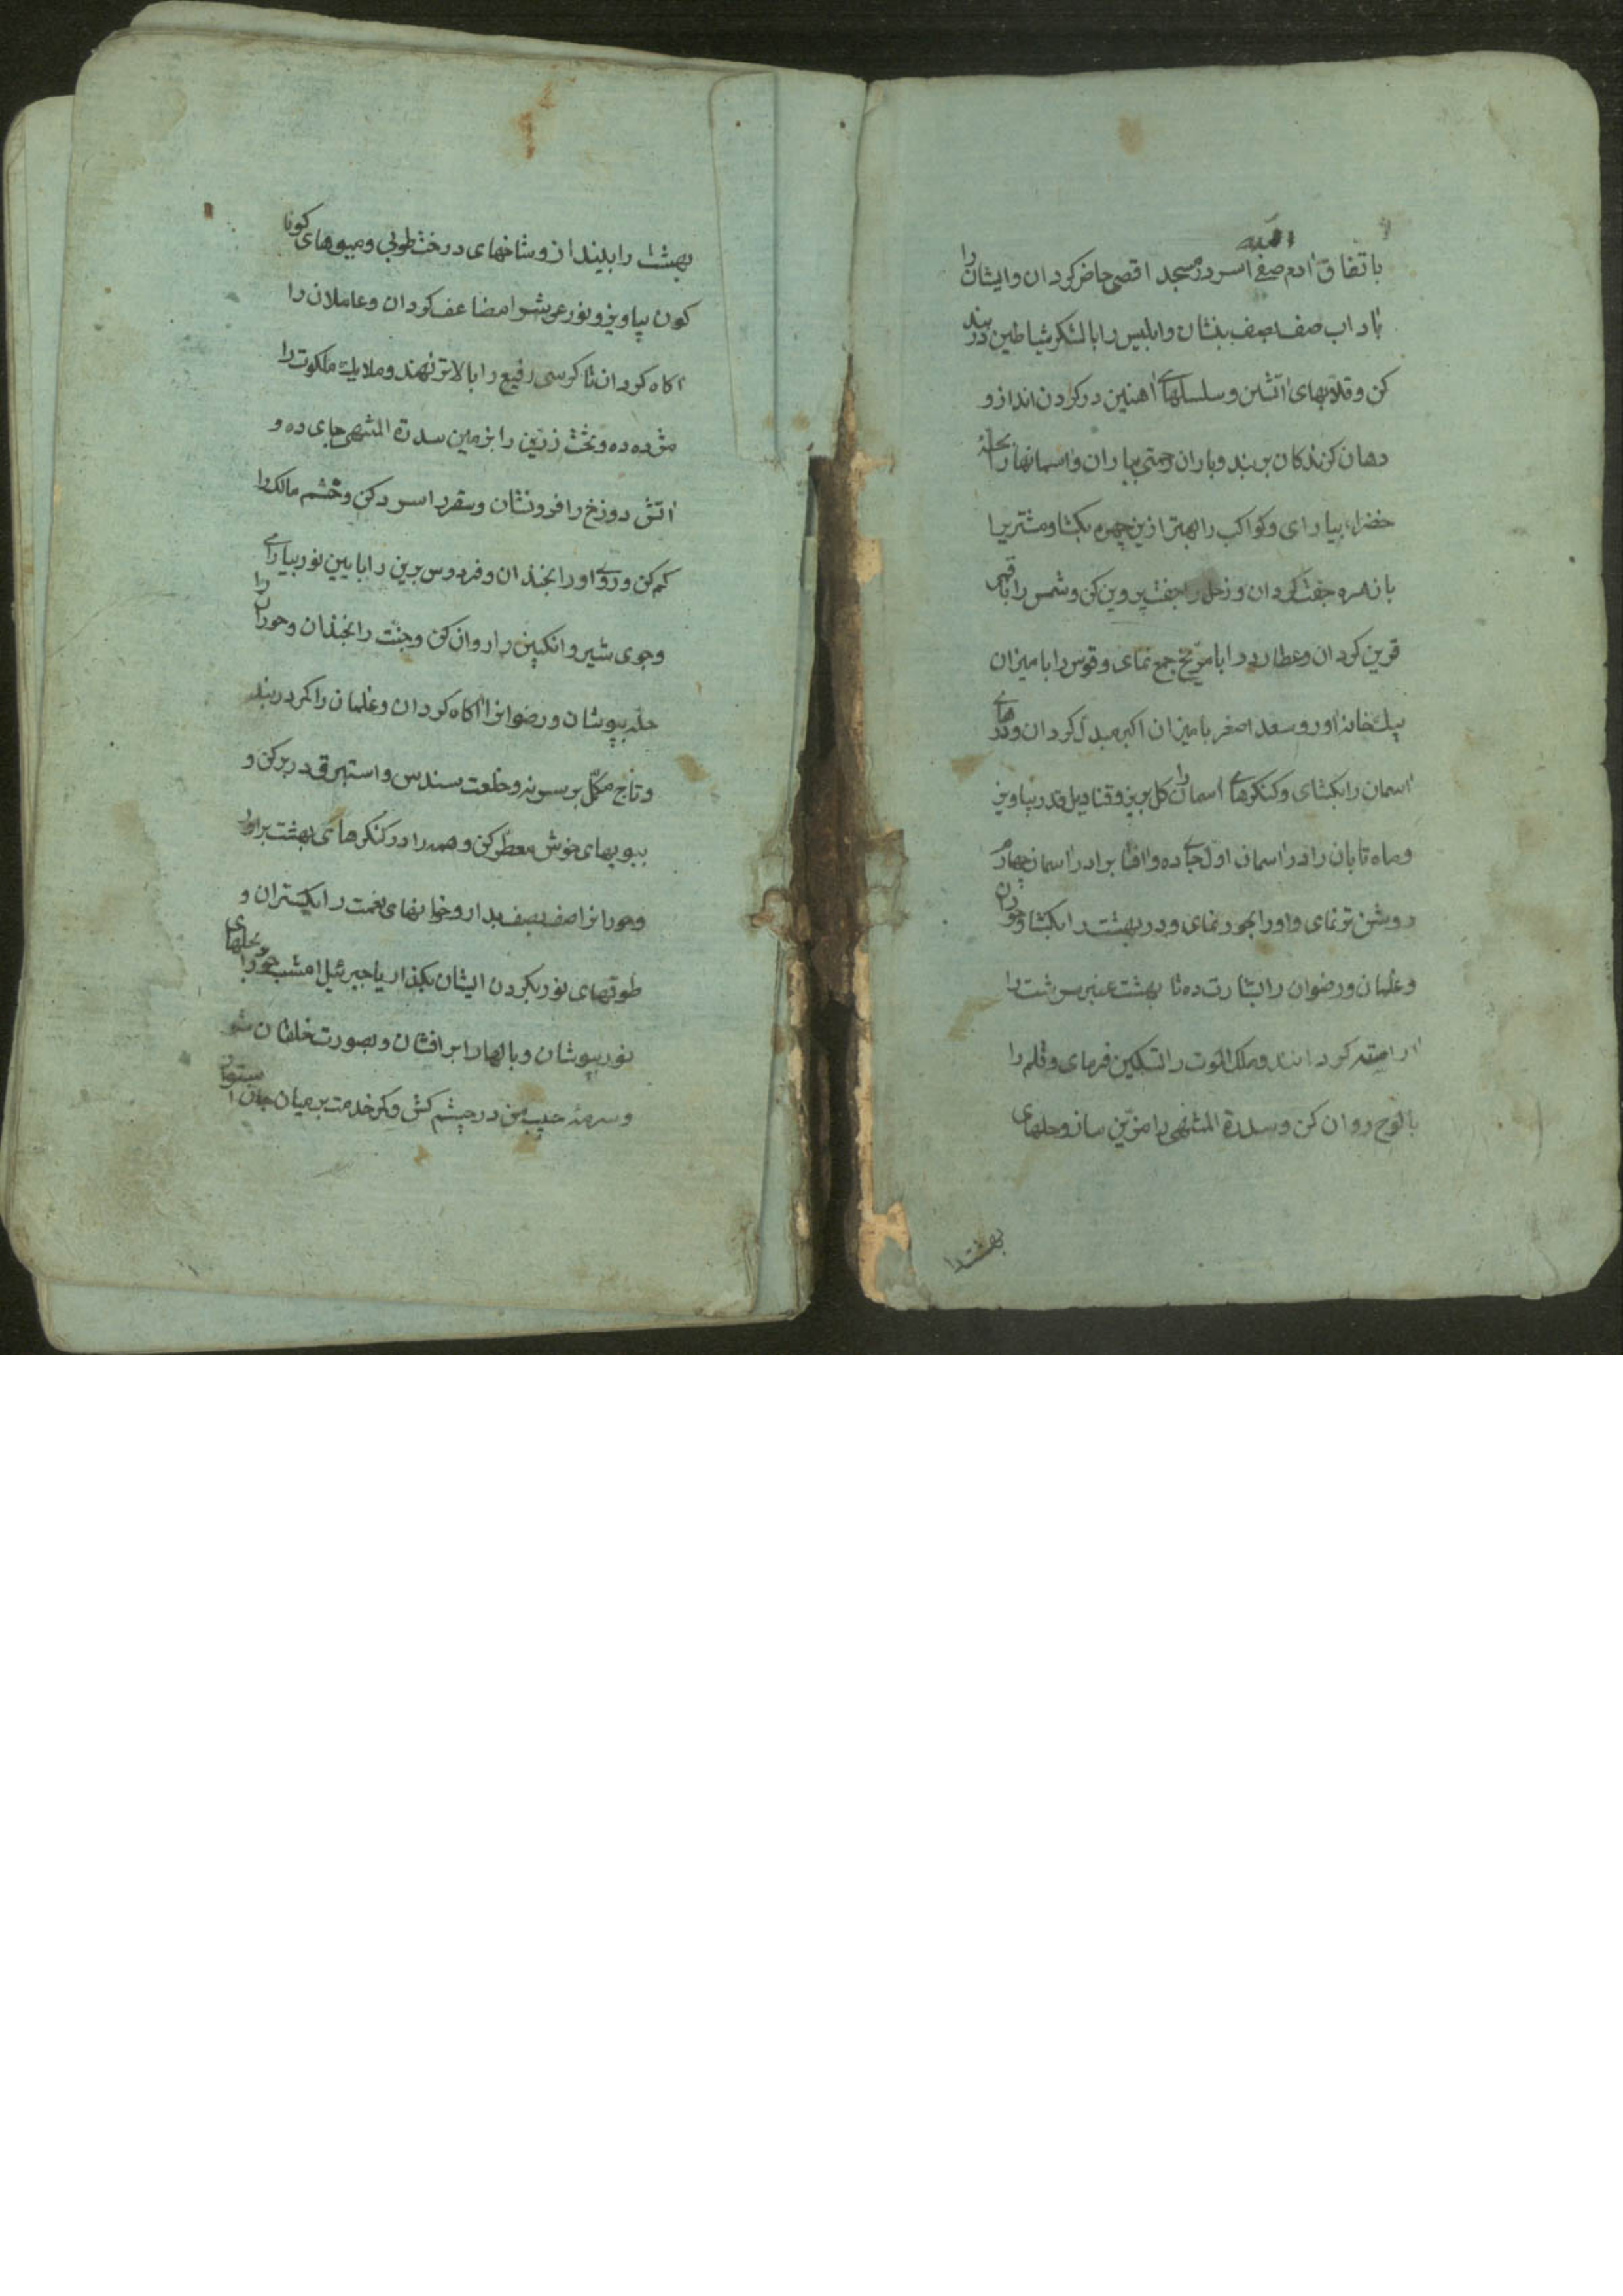 الله
باتفاق آدم صفی اسر در مسجد اقصی حاضر کردان وایشان را
باداب صف بصف بنشان وابلیس را بالشکر شیاطین در بند
کن وقلابهای آتشین وسلسلهای آهنین در کردن انداز و
دهان کزندکان بر بند وباران رحمتی بباران واسمانها را بحله
خضراء بیارای وکواکب را بهتر ازین چهره بکشا ومشتریرا
با زهره جفت کردان وزحل را جفت پروین کن وشمس را با قمر
قرین کردان وعطارد را با مریخ جمع نمای وقوس را با میزان
بیکخانه اور وسعد اصغر با میزان اکبر مبدل کردان ودرهای
آسمان را بکشای وکنکرهای آسمان را کل بریز وقنادیل قدر بیاویز
وماه تابان را در آسمان اول جای ده وافتابرا در آسمان چهارم
روشن تر نمای واورا بحور نمای ودر بهشت را بکشا وحوران
وغلمان ورضوان را بشارت ده تا بهشت عنبر سرشت را
آراسته کردانند وملک الموت را تسکین فرمای وقلم را
بالوح روان کن وسدرة المنتهی را مزین ساز وحلهای
بهشت را
بهشت را بلیند از وشاخهای درخت طوبی ومیوهای کونا
کون بیاویز ونور عرش را مضاعف کردان وعاملان را
اکاه کردان تا کرسی رفیع را بالاتر نهند وملایک ملکوت را
مژده ده وتخت زرین را بزمین سدرة المنتهی جای ده و
آتش دوزخ را فرونشان وسقر را سرد کن وخشم مالک را
کم کن وروی اورا بخندان وفردوس برین را با یین نور بیارای
وجوی شیر وانکبین را روان کن وجنت را بخندان وحوران را
حله بپوشان ورضوانرا آکاه کردان وغلمان را کمر در بند
وتاج مکلل بر سر نه وخلعت سندس واستبرق در بر کن و
ببویهای خوش معطر کن وهمه را در کنکرهای بهشت برآور
وحورانرا صف بصف بدار وخوانهای نعمت را بکستران و
طوقهای نور بکردن ایشان بکذار یا جبرئیل امشب خود را بحلهای
نور بپوشان وبالها را بر افشان وبصورت خلقان شو
وسرمه حبیب من در چشم کش وکمر خدمت بر میان جان